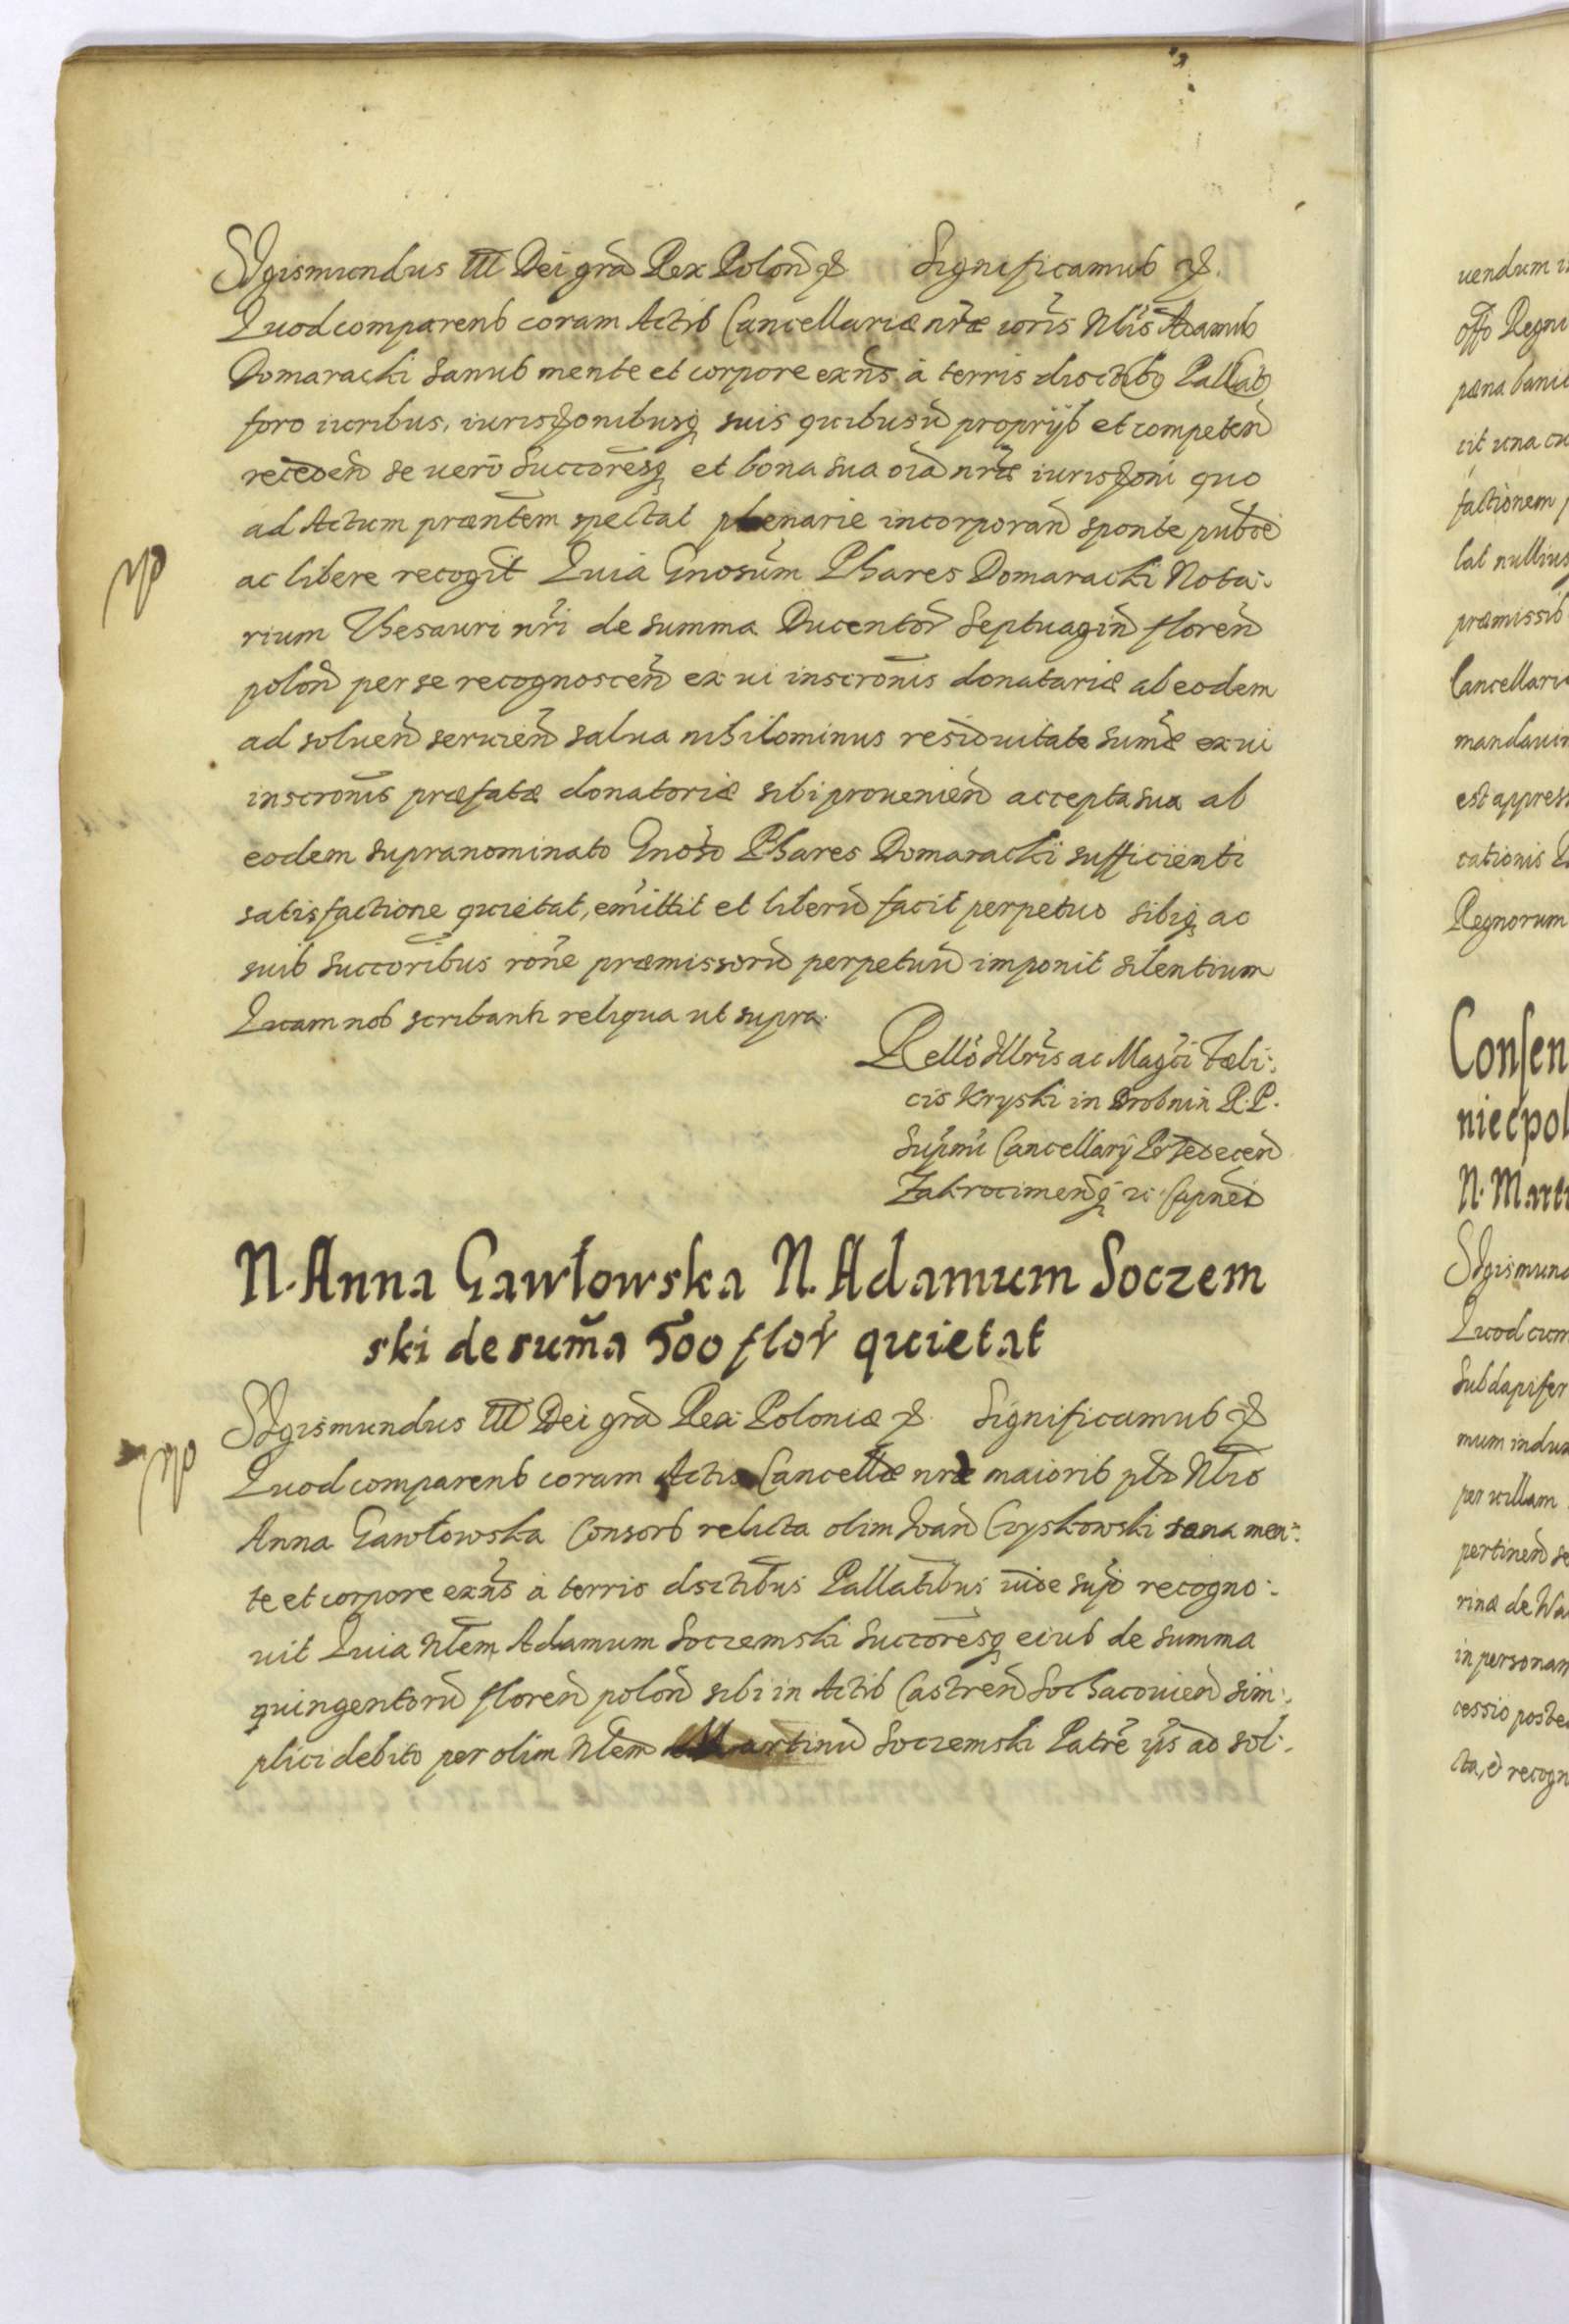 Sigismundus III Dei gra͞ Rex Polon͞ &c Significamus &c.
Quod comparens coram Actis Cancellariæ nr͞æ ioris Nblis Adamus
Domaracki sanus mente et corpore exn͞s à terris distctibq Pallatq
foro iuribus, iurisd͞onibusq suis quibusu͞ proprijs et competen͞
receden͞ se uero succores͞q et bona sua oi͞a nr͞æ iurisd͞oni quo
ad Actum præn͞tem spectat plenarie incorporan͞ sponte pub͞ce
ac libere recog͞it Quia Gnosu͞m Phares Domaracki Nota:
rium Thesauri nr͞i de summa Ducentor͞ septuagin͞ floren͞
polon͞ per se recognoscen͞ ex ui inscron͞is donatariæ ab eodem
ad soluen͞ seruien͞ salua nihilominus residuitate sum͞æ ex ui
inscron͞is præfatæ donatoriæ sibi prouenien͞ accepta sua ab
eodem supranominato Gnoso͞ Phares Domaracki sufficienti
satisfactione quietat, emittit et liberu͞ facit perpetuo sibiq ac
suis succor͞ibus ron͞e præmissoru͞ perpetuu͞ imponit silentium
Quam nob scribanti reliqua ut supra.
Rell͞o Illr͞is ac Mag͞ci Fæli:
cis Kryski in Drobnin R. P.
Sup͞mi Cancellarij
Zakrocimen͞q &c Capnei͞
N. Anna Gawłowska N. Adamum Soczem
ski de sum͞a 500 flor͞ quietat
Sigismundus III Dei gra͞ Rex Poloniæ &c Significamus &c
Quod comparens coram Actis Cancellæ nr͞æ maioris pt͞r Nblis
Anna Gawłowska Consors relicta olim Ioan͞ Cryskowski sana men:
te et corpore exn͞s à terris dsctib͞us Pallatib͞us uide sup͞o recogno:
uit Quia Nblem Adamum Soczemski succores͞q eius de summa
quingentoru͞ floren͞ polon͞ sibi in Actis Castren͞ Sochacouien͞ sim:
plici debito per olim Nblem Martinu͞ Soczemski Patre͞ ip͞s ad sol:
uendum
offo Regni
pæna bani
cit una cu
factionem
lat nullius
præmissis
Cancellari
mandauim
est appress
cationis
Regnorum
Consen
niecpol
N. Mart
Sigismund
Quod cum
Subdapifer
mum indu
per uillam
pertinen͞ se
rinæ de Wa
in personam
cessio poste
cta, & recogn